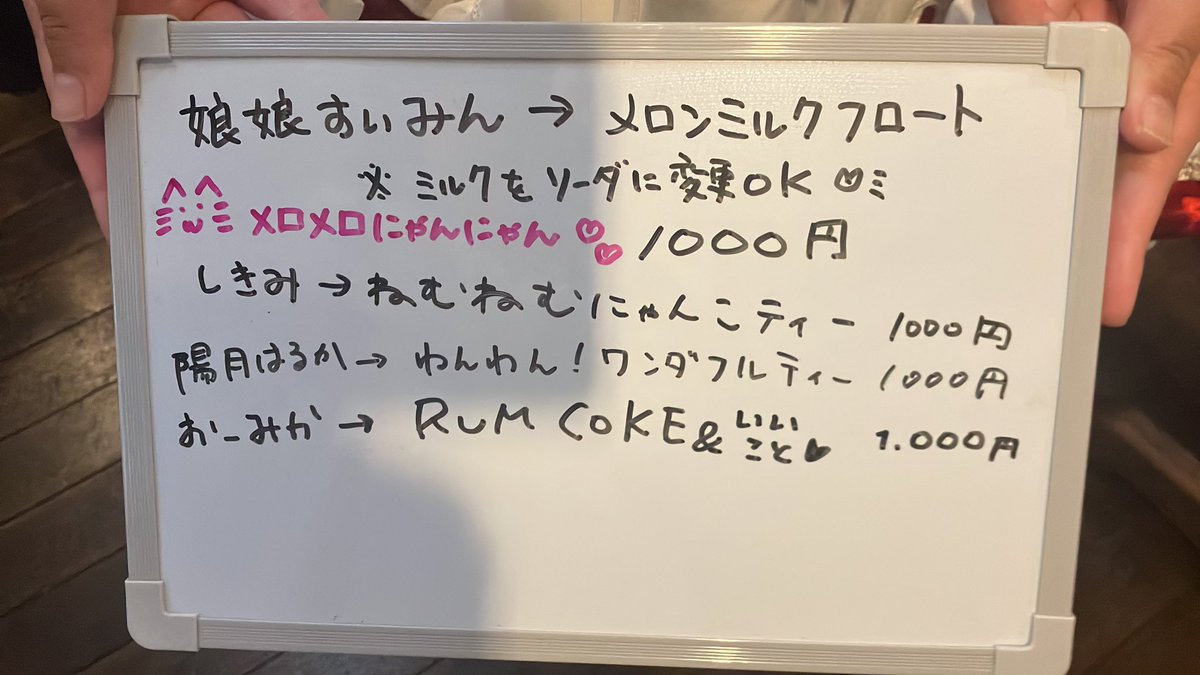 娘娘すいみん → メロンミルクフロート
※ ミルクをソーダに変更OK
メロメロにゃんにゃん♡♡ 1000円
しきみ → ねむねむにゃんこティー 1000円
陽月はるか → わんわん!ワンダフルティー 1000円
おーみか → RUM COKE & いいこと♥ 1.000円